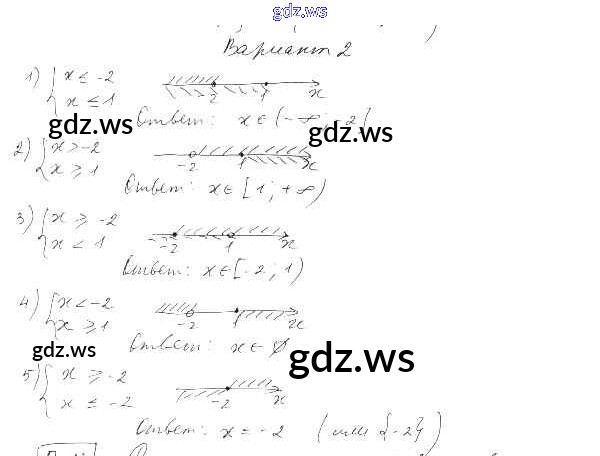 gdz.ws
Вариант 2
1) { x ≤ -2
x ≤ 1
-2 1 x
Ответ: x ∈ (-∞; -2]
gdz.ws gdz.ws
2) { x > -2
x ≥ 1
-2 1 x
Ответ: x ∈ [1; +∞)
3) { x ≥ -2
x < 1
-2 1 x
Ответ: x ∈ [-2; 1)
4) { x < -2
x ≥ 1
-2 1 x
gdz.ws Ответ: x ∈ ∅ gdz.ws
5) { x ≥ -2
x ≤ -2
-2 x
Ответ: x = -2 (или {-2})